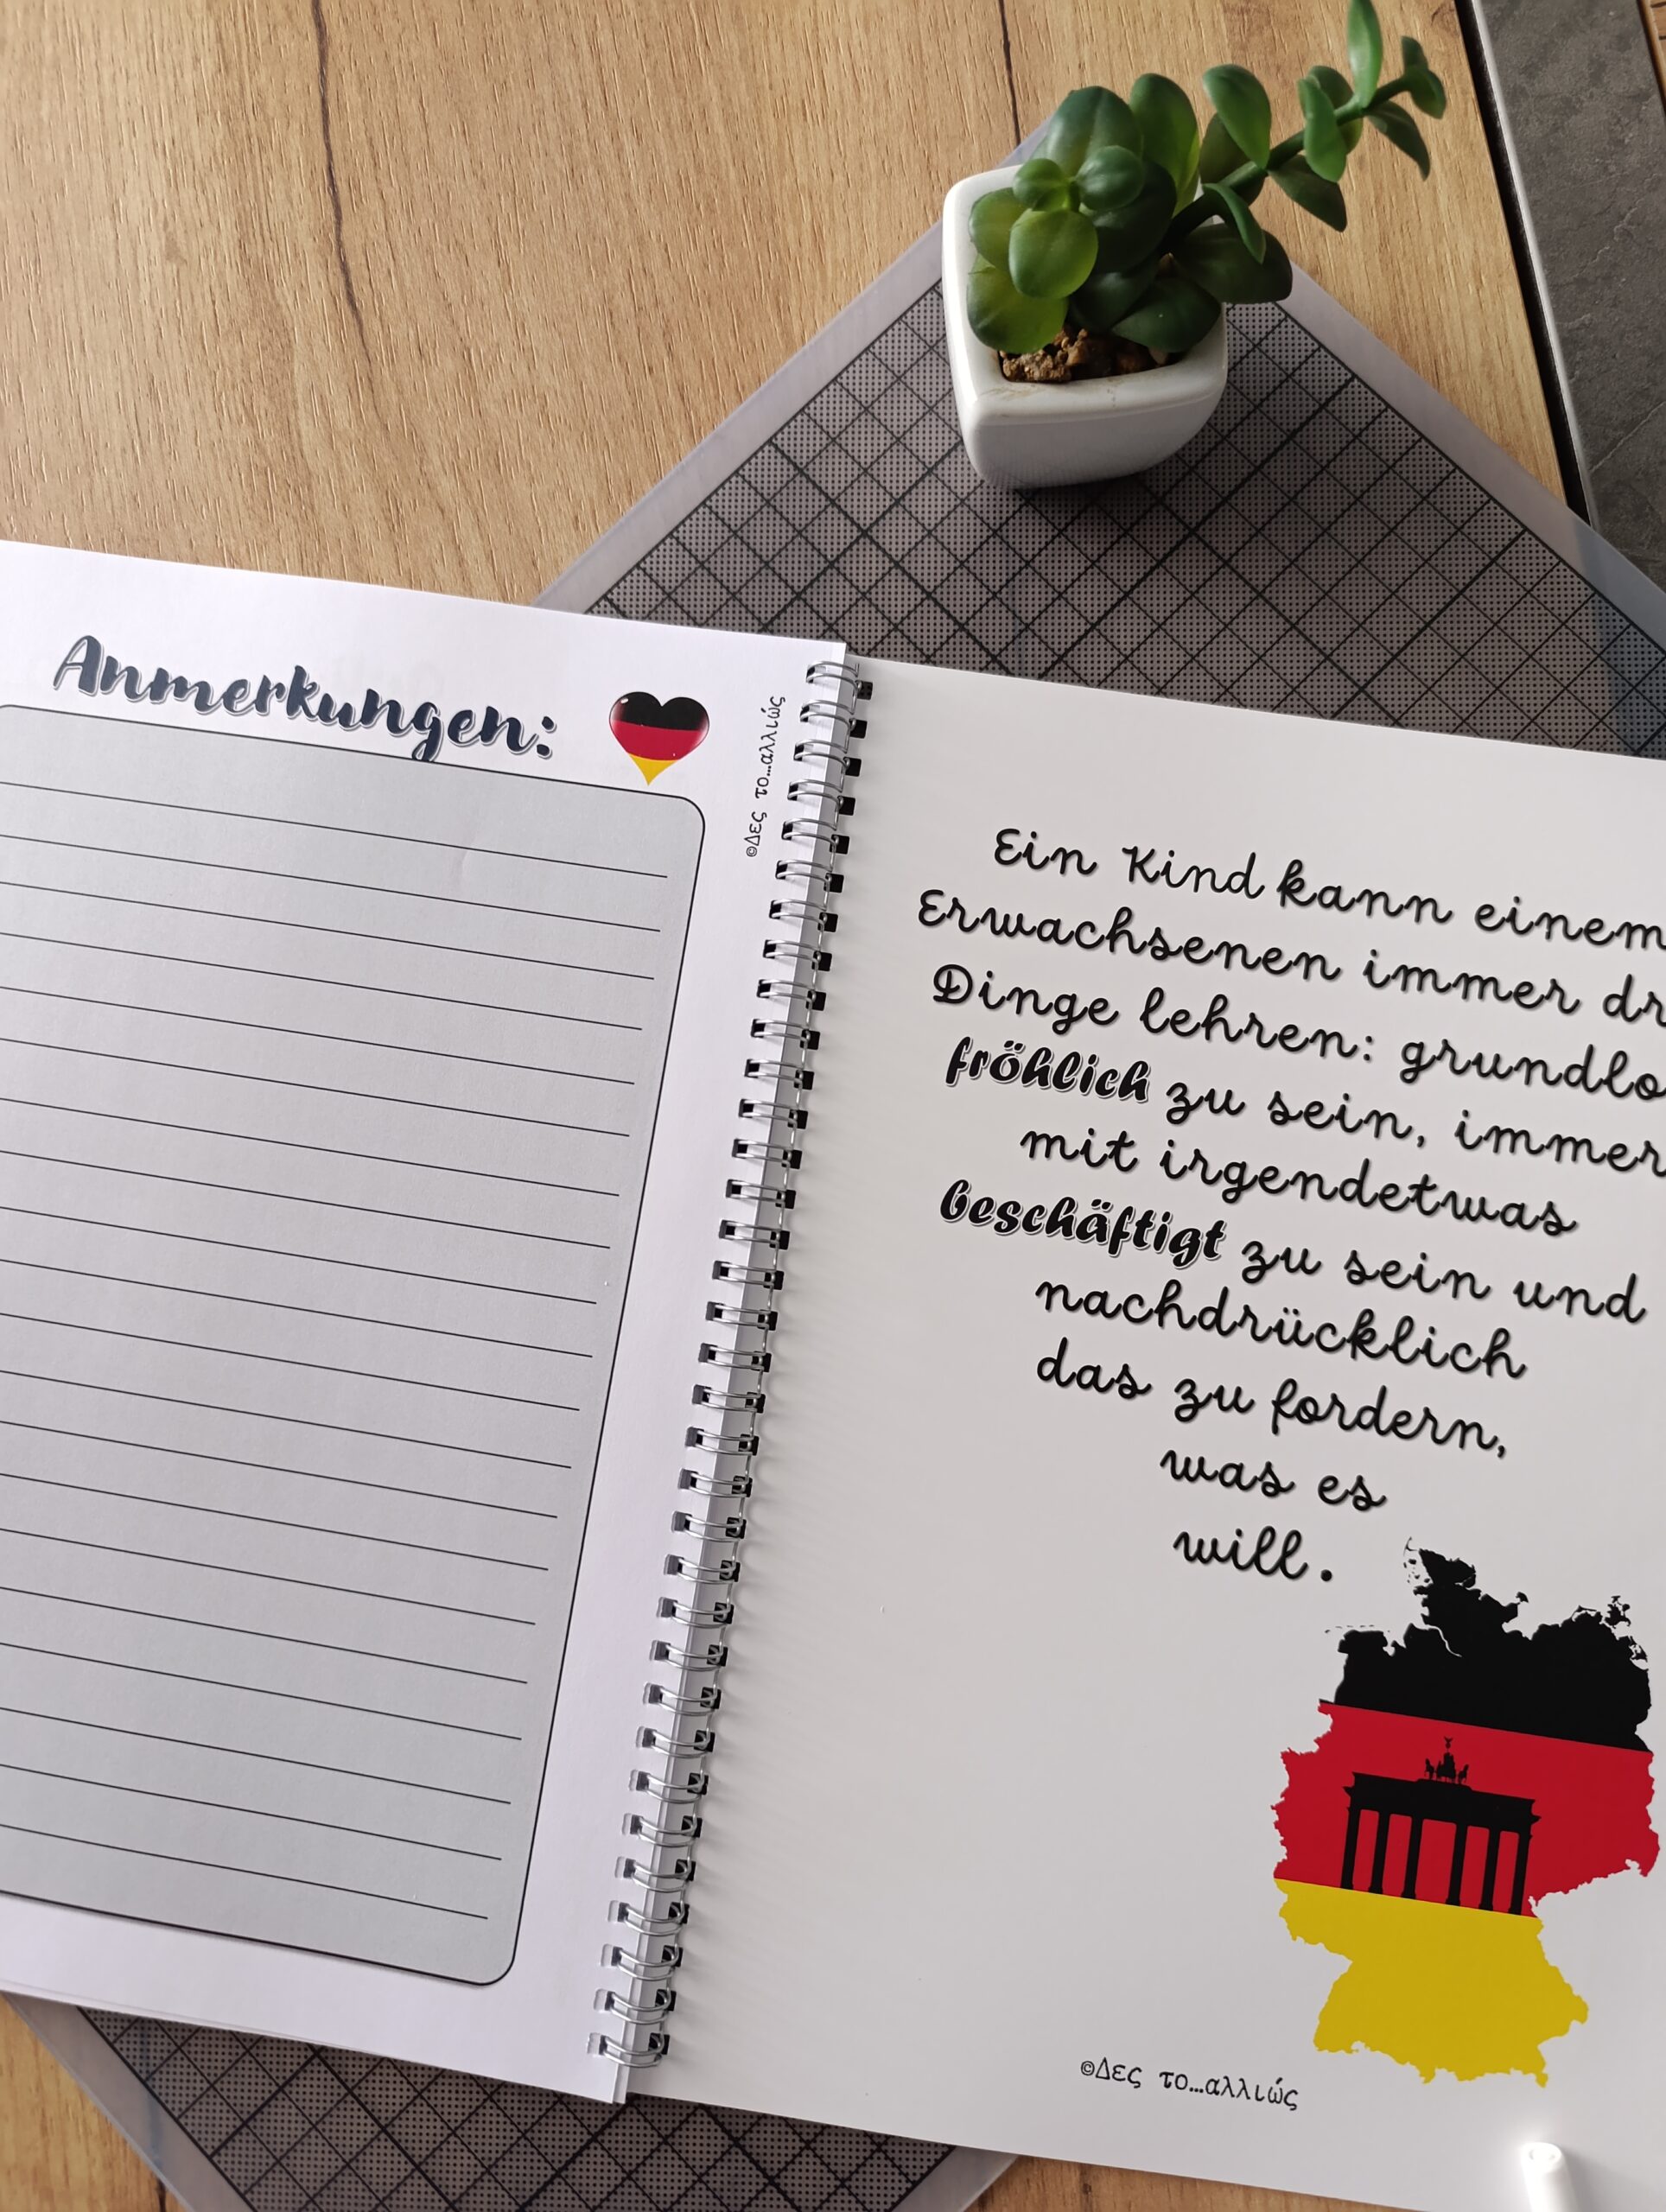 Anmerkungen:
©Δες το...αλλιώς
Ein Kind kann einem
Erwachsenen immer dr
Dinge lehren: grundlo
fröhlich zu sein, immer
mit irgendetwas
beschäftigt zu sein und
nachdrücklich
das zu fordern,
was es
will.
©Δες το...αλλιώς